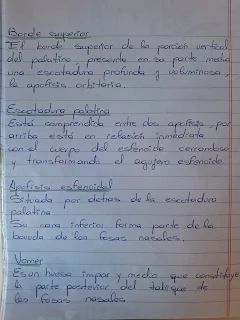 Borde superior
El borde superior de la porción vertical
del palatino, presenta en su parte media
una escotadura profunda y voluminosa,
la apofisis orbitaria.
Escotadura palatina
Está comprendida entre dos apofisis, por
arriba está en relación inmediata
con el cuerpo del esfenoide cerrandose
y transformando el agujero esfenoide.
Apofisis esfenoidal
Situada por detras de la escotadura
palatina.
Su cara inferior forma parte de la
boveda de las fosas nasales.
Vomer
Es un hueso impar y medio que constituye
la parte posterior del tabique de
las fosas nasales